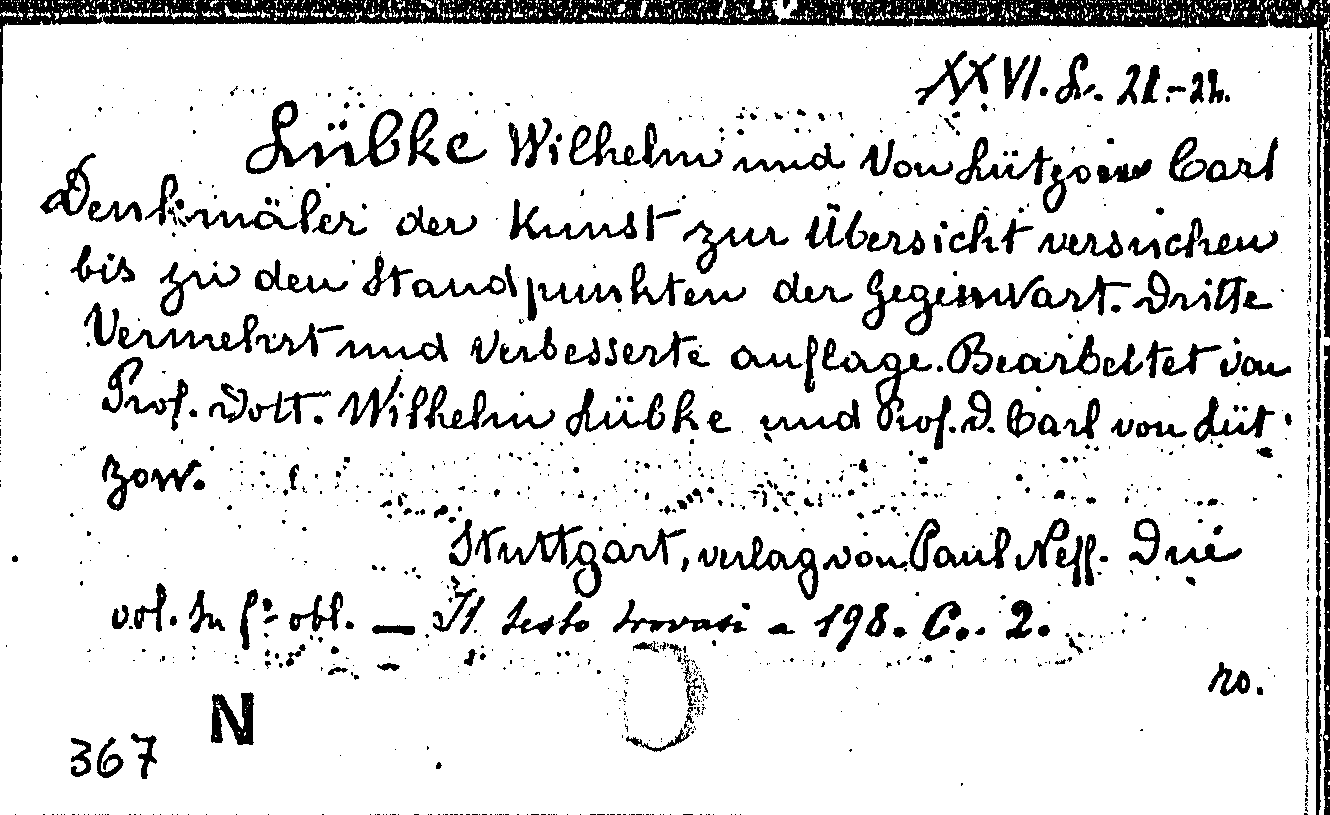 XXVI. L. 21.-22.
Lübke Wilhelm und Von Lützow Carl
Denkmäler der Kunst zur Übersicht versuchen
bis zu den Standpunkten der Gegenwart. Dritte
Vermehrt und Verbesserte auflage. Bearbeitet von
Prof. Dott. Wilhelm Lübke und Prof. D. Carl von Lüt
zow.
Stuttgart, verlag von Paul Neff. Due
vol. In fº obl. — Il testo trovasi a 198. C. 2.
ro.
N
367